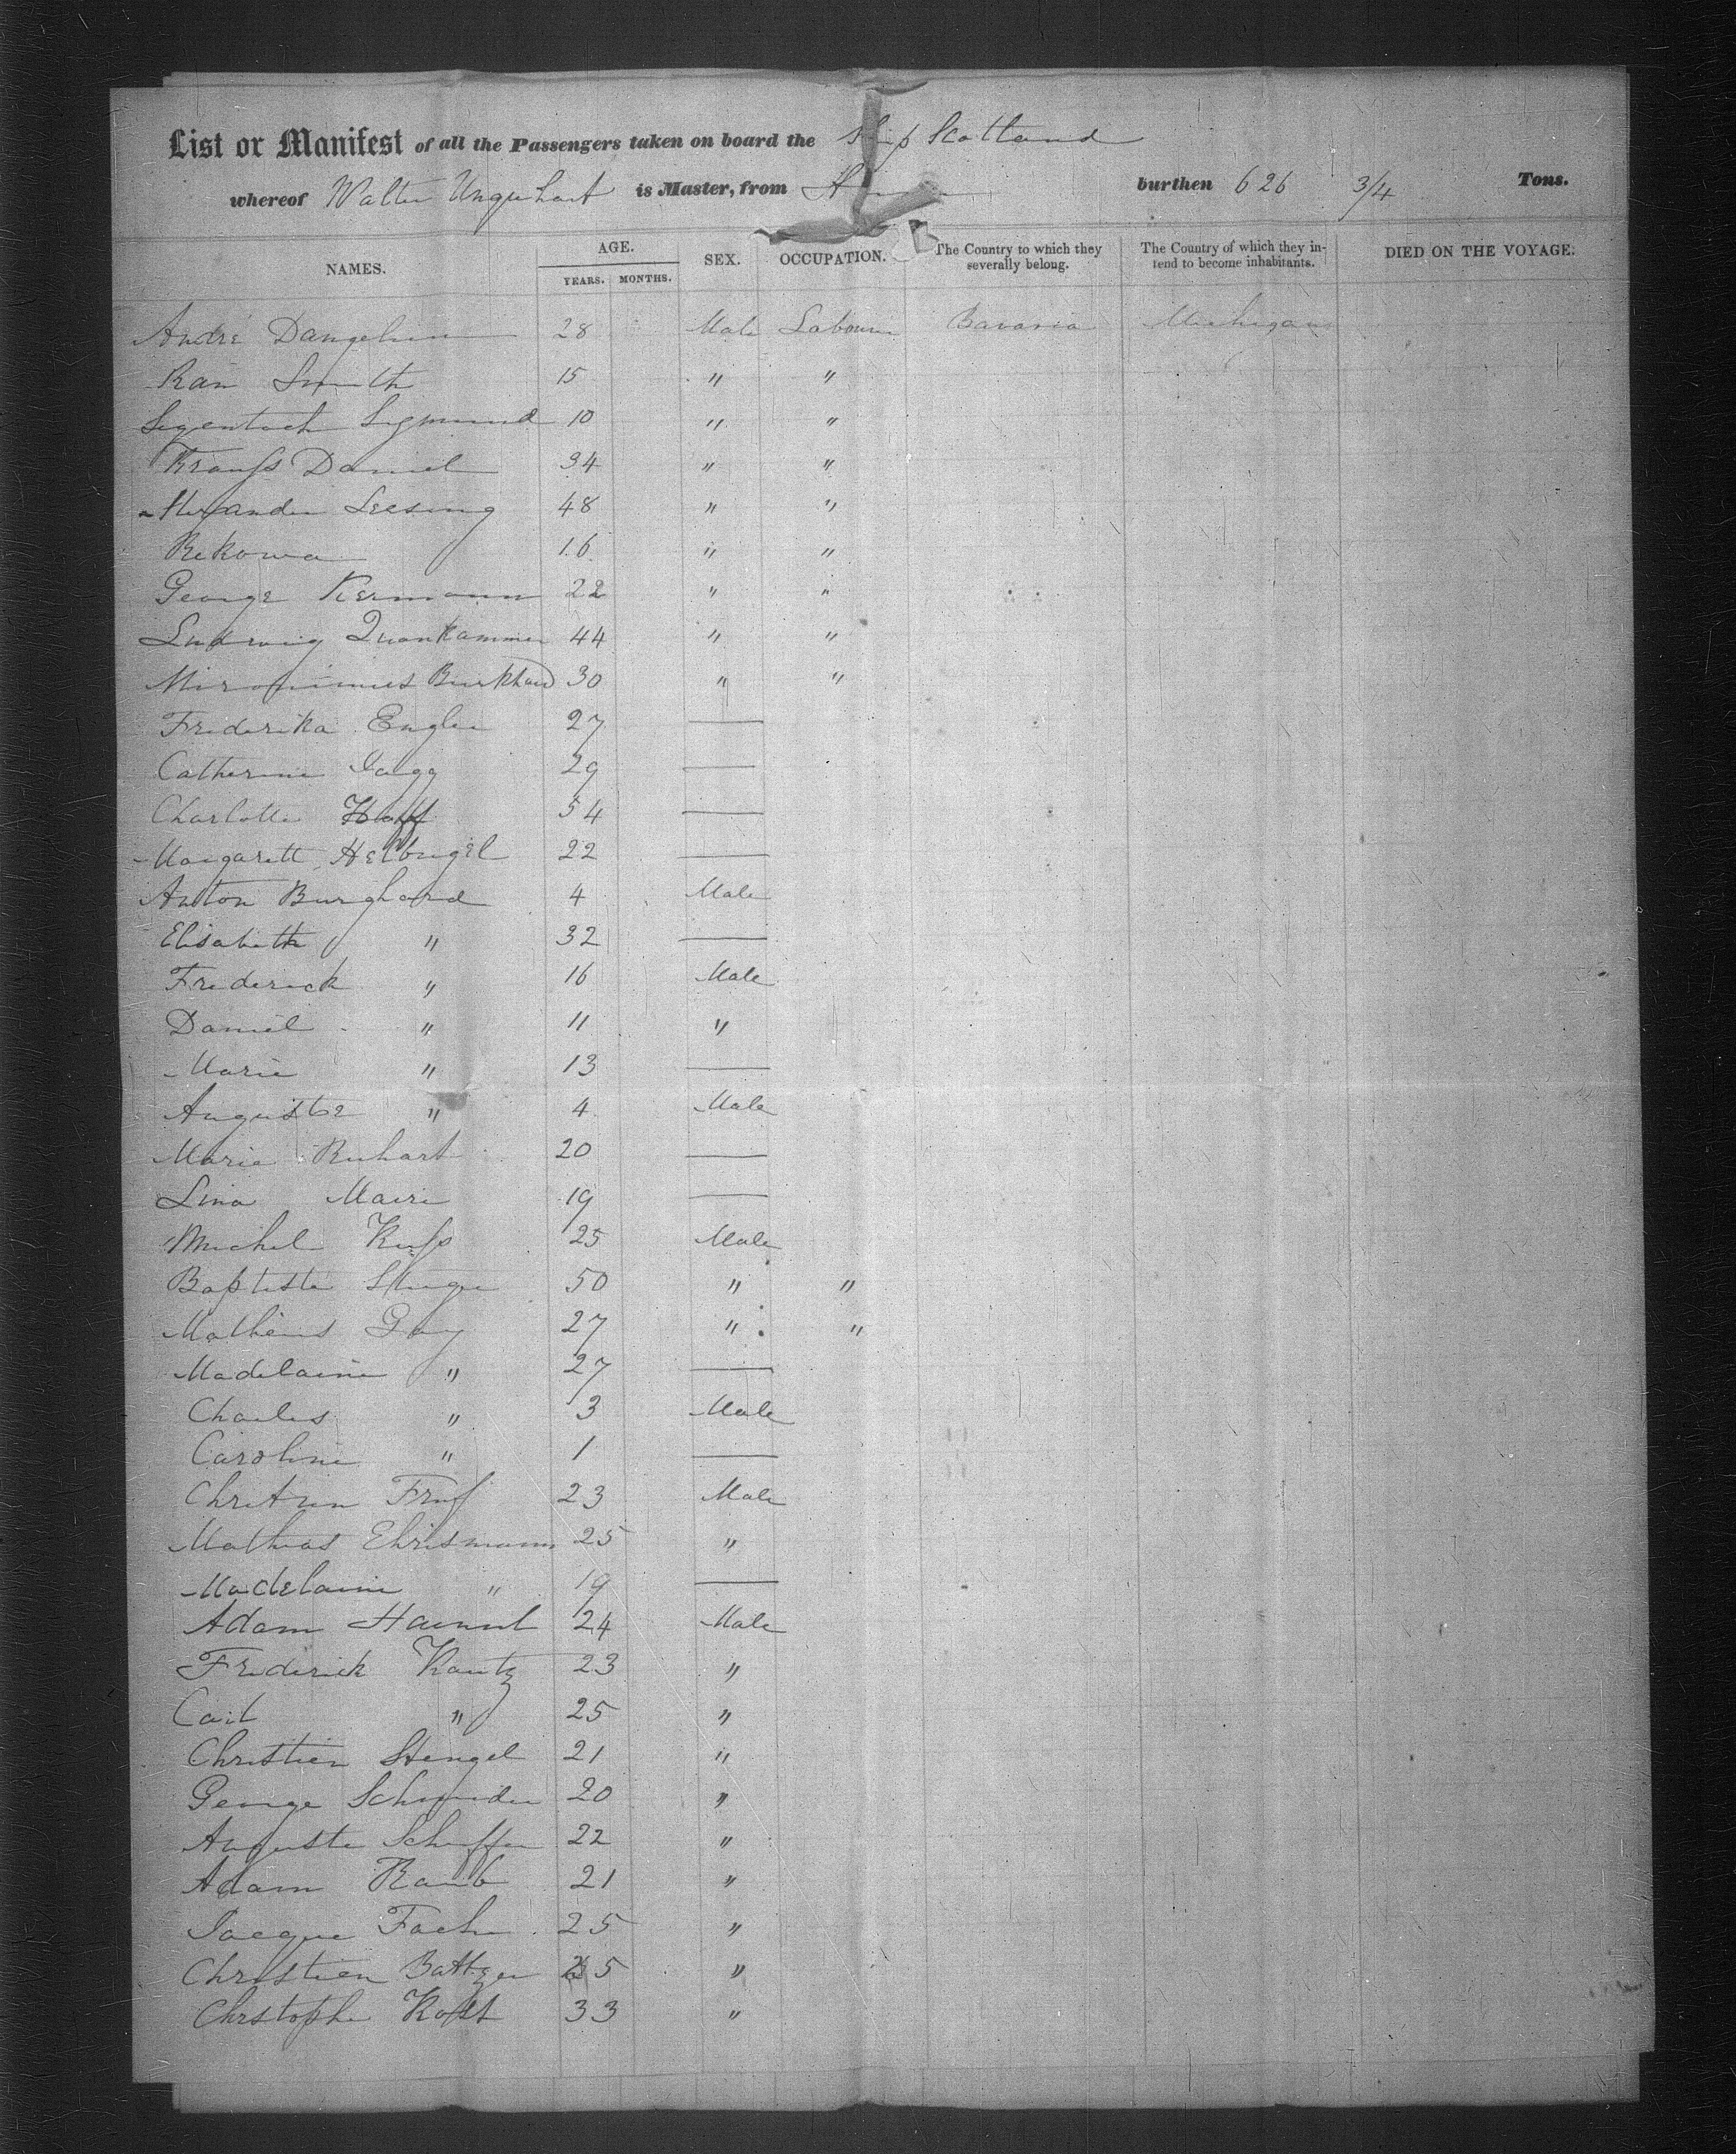 List or Manifest of all the Passengers taken on board the Ship Scotland
whereof Walter Urquhart is Master, from burthen 626 3/4 Tons.
NAMES. AGE. YEARS. MONTHS. SEX. OCCUPATION. The Country to which they severally belong. The Country of which they intend to become inhabitants. DIED ON THE VOYAGE.
André 28 Male Labourer Bavaria Michigan
Smith 15 " "
Sigmund 10 " "
Krauss Daniel 34 " "
Alexander Leesing 48 " "
Rekowa 16 " "
George Kermann 22 " "
Ludwig 44 " "
Burkhard 30 " "
Frederika Engler 27 —
Catherine 29 —
Charlotte Hoff 54 —
Margarett Helbrigel 22 —
Anton Burghard 4 Male
Elisabeth " 32 —
Frederick " 16 Male
Daniel " 11 "
Marie " 13 —
Auguste " 4 Male
Marie Ruhart 20 —
Lina Maire 19 —
Michel Kuss 25 Male
Baptiste 50 " "
Matheus Gay 27 " "
Madelaine " 27 —
Charles " 3 Male
Caroline " 1 —
23 Male
Mathias Ehrismann 25 "
Madelaine " 19 —
Adam 24 Male
Frederick Kautz 23 "
Carl " 25 "
Christien Stengel 21 "
George Schneider 20 "
Auguste Scheffer 22 "
Adam Raub 21 "
Jacque 25 "
Christien Battzer 25 "
Christophe Kost 33 "